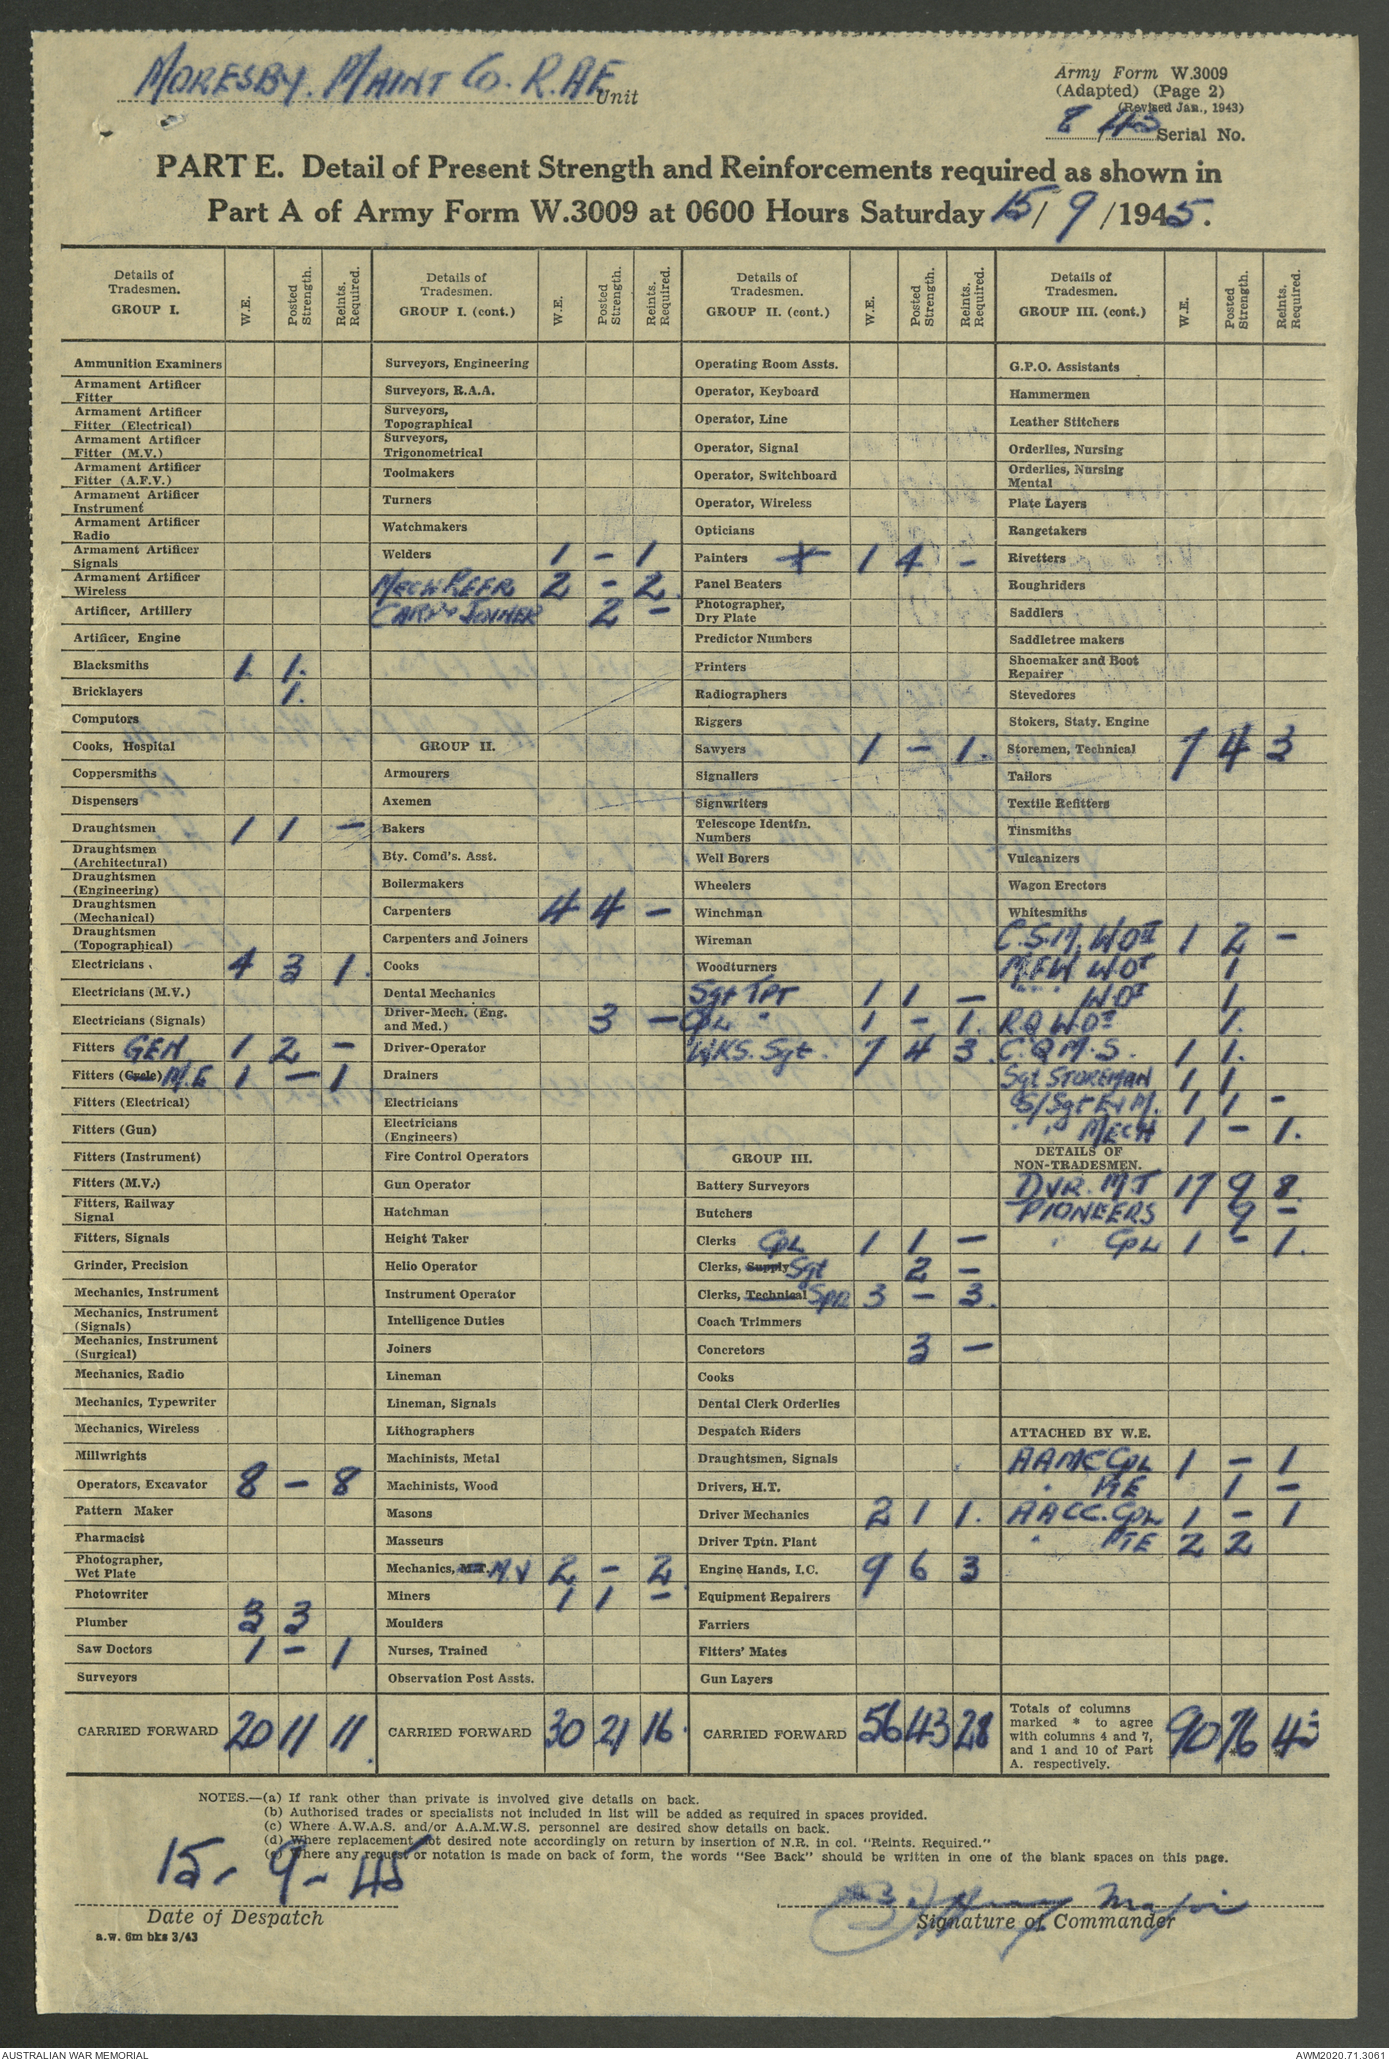 MORESBY. MAINT Co. R.A.E. Unit
Army Form W.3009
(Adapted) (Page 2)
(Revised Jan., 1943)
8/45 Serial No.
PART E. Detail of Present Strength and Reinforcements required as shown in
Part A of Army Form W.3009 at 0600 Hours Saturday 15/9/1945.
Details of Tradesmen. GROUP I. W.E. Posted Strength. Reints. Required.
Ammunition Examiners
Armament Artificer Fitter
Armament Artificer Fitter (Electrical)
Armament Artificer Fitter (M.V.)
Armament Artificer Fitter (A.F.V.)
Armament Artificer Instrument
Armament Artificer Radio
Armament Artificer Signals
Armament Artificer Wireless
Artificer, Artillery
Artificer, Engine
Blacksmiths 1. 1.
Bricklayers 1.
Computors
Cooks, Hospital
Coppersmiths
Dispensers
Draughtsmen 1 1 –
Draughtsmen (Architectural)
Draughtsmen (Engineering)
Draughtsmen (Mechanical)
Draughtsmen (Topographical)
Electricians 4 3 1.
Electricians (M.V.)
Electricians (Signals)
Fitters GEN. 1 2 –
Fitters (Cycle) M.E 1 – 1
Fitters (Electrical)
Fitters (Gun)
Fitters (Instrument)
Fitters (M.V.)
Fitters, Railway Signal
Fitters, Signals
Grinder, Precision
Mechanics, Instrument
Mechanics, Instrument (Signals)
Mechanics, Instrument (Surgical)
Mechanics, Radio
Mechanics, Typewriter
Mechanics, Wireless
Millwrights
Operators, Excavator 8 – 8
Pattern Maker
Pharmacist
Photographer, Wet Plate
Photowriter
Plumber 3 3
Saw Doctors 1 – 1
Surveyors
CARRIED FORWARD 20 11 11.
Details of Tradesmen. GROUP I. (cont.) W.E. Posted Strength. Reints. Required.
Surveyors, Engineering
Surveyors, R.A.A.
Surveyors, Topographical
Surveyors, Trigonometrical
Toolmakers
Turners
Watchmakers
Welders 1 – 1
MECH REFR 2 – 2.
CARP & JOINER 2 –
GROUP II.
Armourers
Axemen
Bakers
Bty. Comd's. Asst.
Boilermakers
Carpenters 4 4 –
Carpenters and Joiners
Cooks
Dental Mechanics
Driver-Mech. (Eng. and Med.) 3 –
Driver-Operator
Drainers
Electricians
Electricians (Engineers)
Fire Control Operators
Gun Operator
Hatchman
Height Taker
Helio Operator
Instrument Operator
Intelligence Duties
Joiners
Lineman
Lineman, Signals
Lithographers
Machinists, Metal
Machinists, Wood
Masons
Masseurs
Mechanics, M.V 2 – 2.
Miners 1 1 –
Moulders
Nurses, Trained
Observation Post Assts.
CARRIED FORWARD 30 21 16.
Details of Tradesmen. GROUP II. (cont.) W.E. Posted Strength. Reints. Required.
Operating Room Assts.
Operator, Keyboard
Operator, Line
Operator, Signal
Operator, Switchboard
Operator, Wireless
Opticians
Painters 1 4 –
Panel Beaters
Photographer, Dry Plate
Predictor Numbers
Printers
Radiographers
Riggers
Sawyers 1 – 1.
Signallers
Signwriters
Telescope Identfn. Numbers
Well Borers
Wheelers
Winchman
Wireman
Woodturners
Sgt TPT 1 1 –
CPL " 1 – 1.
WKS. Sgt. 7 4 3.
GROUP III.
Battery Surveyors
Butchers
Clerks CPL 1 1 –
Clerks, Supply Sgt 2 –
Clerks, Technical SPR 3 – 3.
Coach Trimmers
Concretors 3 –
Cooks
Dental Clerk Orderlies
Despatch Riders
Draughtsmen, Signals
Drivers, H.T.
Driver Mechanics 2 1 1.
Driver Tptn. Plant
Engine Hands, I.C. 9 6 3
Equipment Repairers
Farriers
Fitters' Mates
Gun Layers
CARRIED FORWARD 56 43 28
Details of Tradesmen. GROUP III. (cont.) W.E. Posted Strength. Reints. Required.
G.P.O. Assistants
Hammermen
Leather Stitchers
Orderlies, Nursing
Orderlies, Nursing Mental
Plate Layers
Rangetakers
Rivetters
Roughriders
Saddlers
Saddletree makers
Shoemaker and Boot Repairer
Stevedores
Stokers, Staty. Engine
Storemen, Technical 7 4 3
Tailors
Textile Refitters
Tinsmiths
Vulcanizers
Wagon Erectors
Whitesmiths
C.S.M. WOII 1 2 –
M.F.W. WOI 1
" " WOII 1
R.Q WOII 1.
C.Q.M.S. 1 1.
Sgt STOREMAN 1 1
S/Sgt E & M. 1 1 –
" " MECH 1 – 1.
DETAILS OF NON-TRADESMEN.
DVR. M.T 17 9 8.
PIONEERS 9 –
" CPL 1 – 1.
ATTACHED BY W.E.
AAMC CPL 1 – 1
" PTE 1 –
AACC. CPL 1 – 1
" PTE 2 2
Totals of columns marked * to agree with columns 4 and 7, and 1 and 10 of Part A. respectively. 90 76 43
NOTES.—(a) If rank other than private is involved give details on back.
(b) Authorised trades or specialists not included in list will be added as required in spaces provided.
(c) Where A.W.A.S. and/or A.A.M.W.S. personnel are desired show details on back.
(d) Where replacement not desired note accordingly on return by insertion of N.R. in col. "Reints. Required."
(e) Where any request or notation is made on back of form, the words "See Back" should be written in one of the blank spaces on this page.
15-9-45
Date of Despatch
Major
Signature of Commander
a.w. 6m bks 3/43
AUSTRALIAN WAR MEMORIAL
AWM2020.71.3061